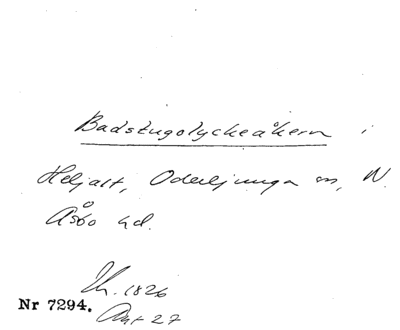 Badstugolyckeåkern i
Heljalt, Oderljunga sn, N.
Åsbo hd.
Lh. 1826
Nr 7294.
Akt 27